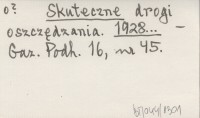 o? Skuteczne drogi
oszczędzania. 1928...
Gaz. Podh. 16, nr 45.